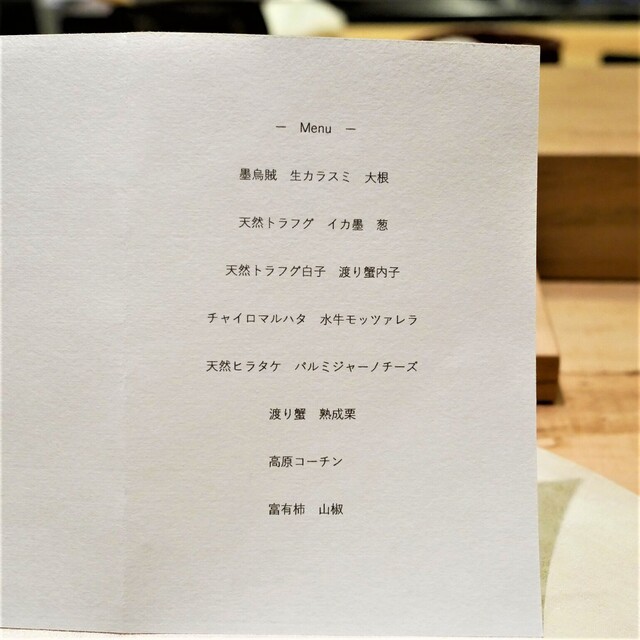 ― Menu ―
墨烏賊　生カラスミ　大根
天然トラフグ　イカ墨　葱
天然トラフグ白子　渡り蟹内子
チャイロマルハタ　水牛モッツァレラ
天然ヒラタケ　パルミジャーノチーズ
渡り蟹　熟成栗
高原コーチン
富有柿　山椒